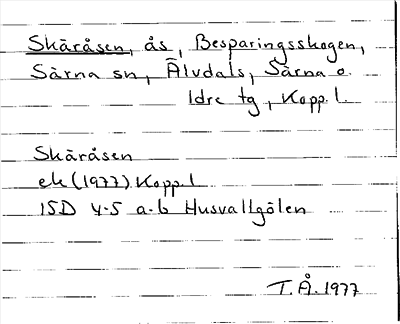 Skäråsen, ås, Besparingsskogen,
Särna sn, Älvdals, Särna o.
Idre tg, Kopp. l.
Skäråsen
ek (1977) Kopp. l
15D 4-5 a-b Husvallgölen
T.Å. 1977